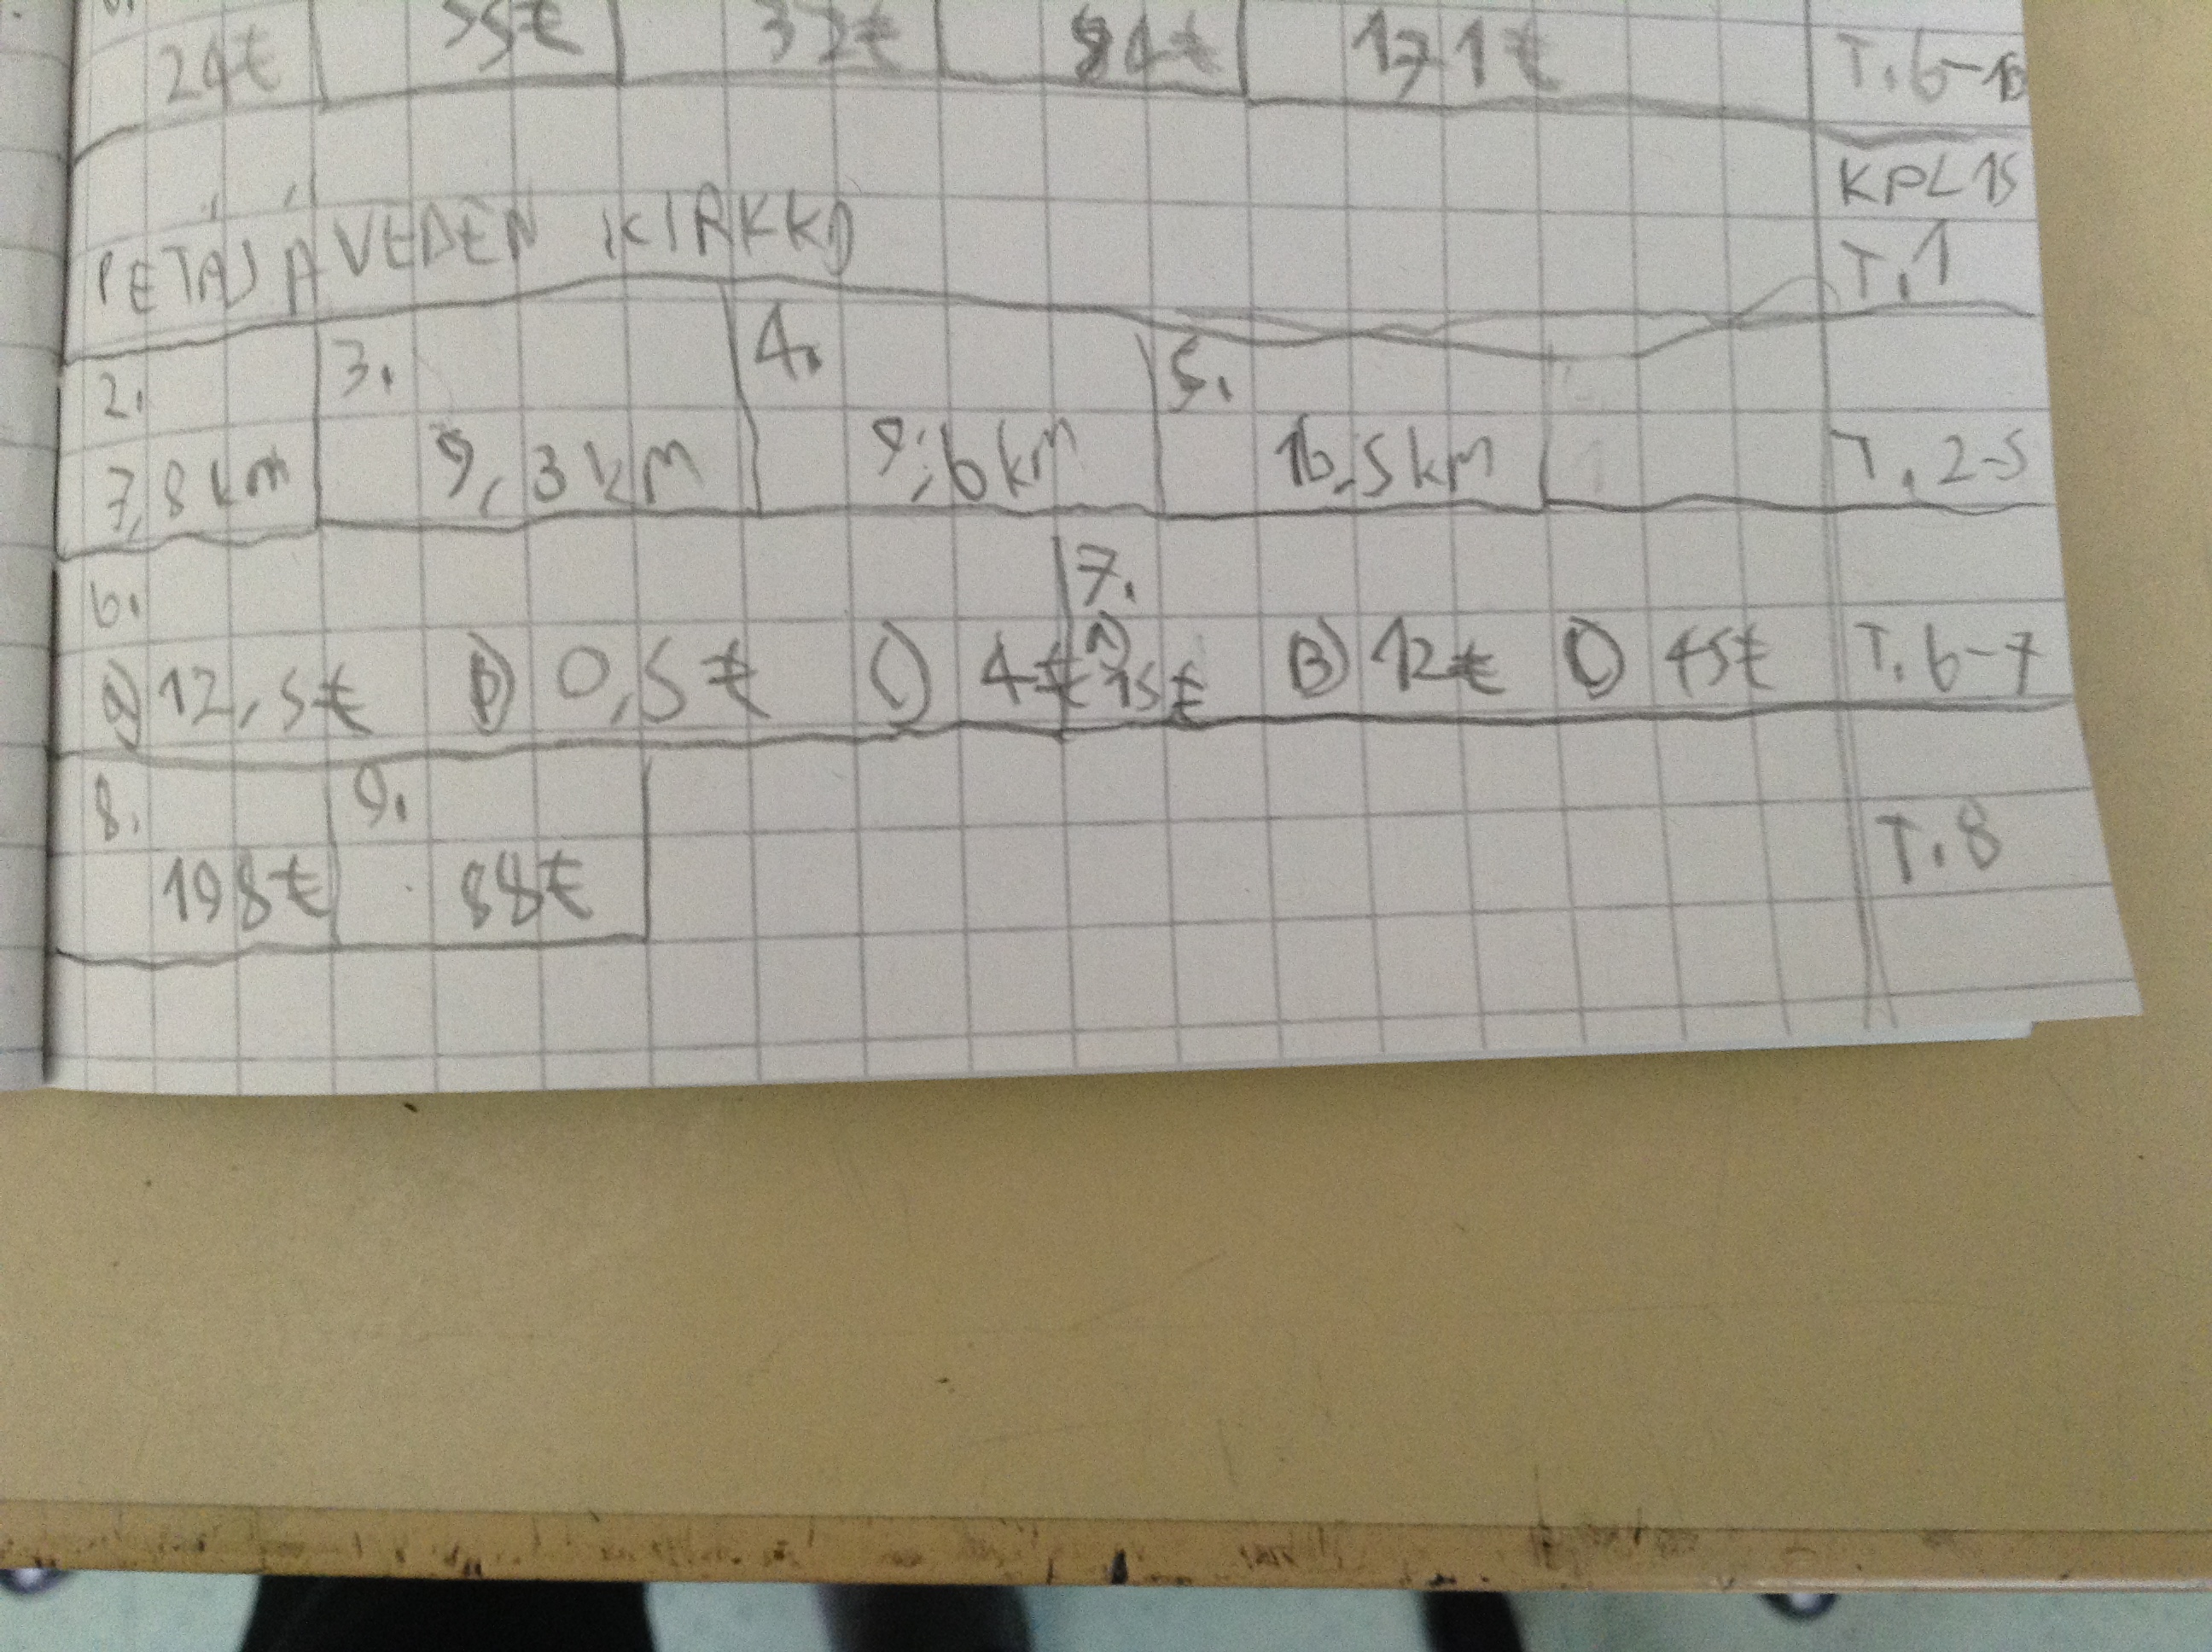 24€ 35€ 32€ 84€ 171€ T.6-10
KPL 15
PETÄJÄVEDEN KIRKKO
T.1
2. 3. 4. 5.
7,8 km 9,3 km 9,6 km 16,5 km T.2-5
6. 7.
A) 12,5€ B) 0,5€ C) 4€ A) 15€ B) 12€ C) 45€ T.6-7
8. 9.
198€ 88€ T.8